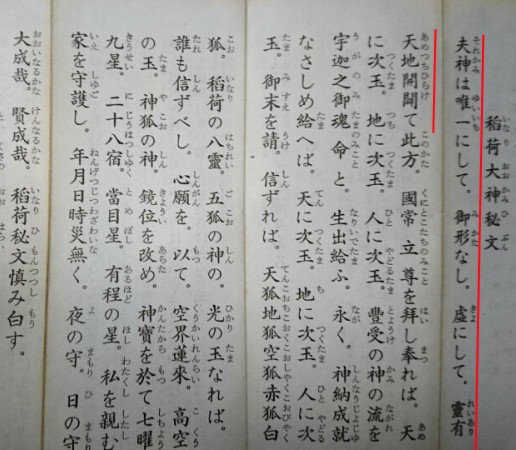 稲荷大神秘文
夫神は唯一にして。御形なし。虚にして。靈有
天地開闢て此方。國常立尊を拜し奉れば。天
に次玉。地に次玉。人に次玉。豊受の神の流を
宇迦之御魂命と。生出給ふ。永く。神納成就
なさしめ給へば。天に次玉。地に次玉。人に次
玉。御末を請。信ずれば。天狐地狐空狐赤狐白
狐。稲荷の八靈。五狐の神の。光の玉なれば。
誰も信ずべし。心願を。以て。空界蓮來。高空
の玉。神狐の神。鏡位を改め。神寶を於て七曜
九星。二十八宿。當目星。有程の星。私を親む
家を守護し。年月日時災無く。夜の守。日の守
大成哉。賢成哉。稲荷秘文慎み白す。